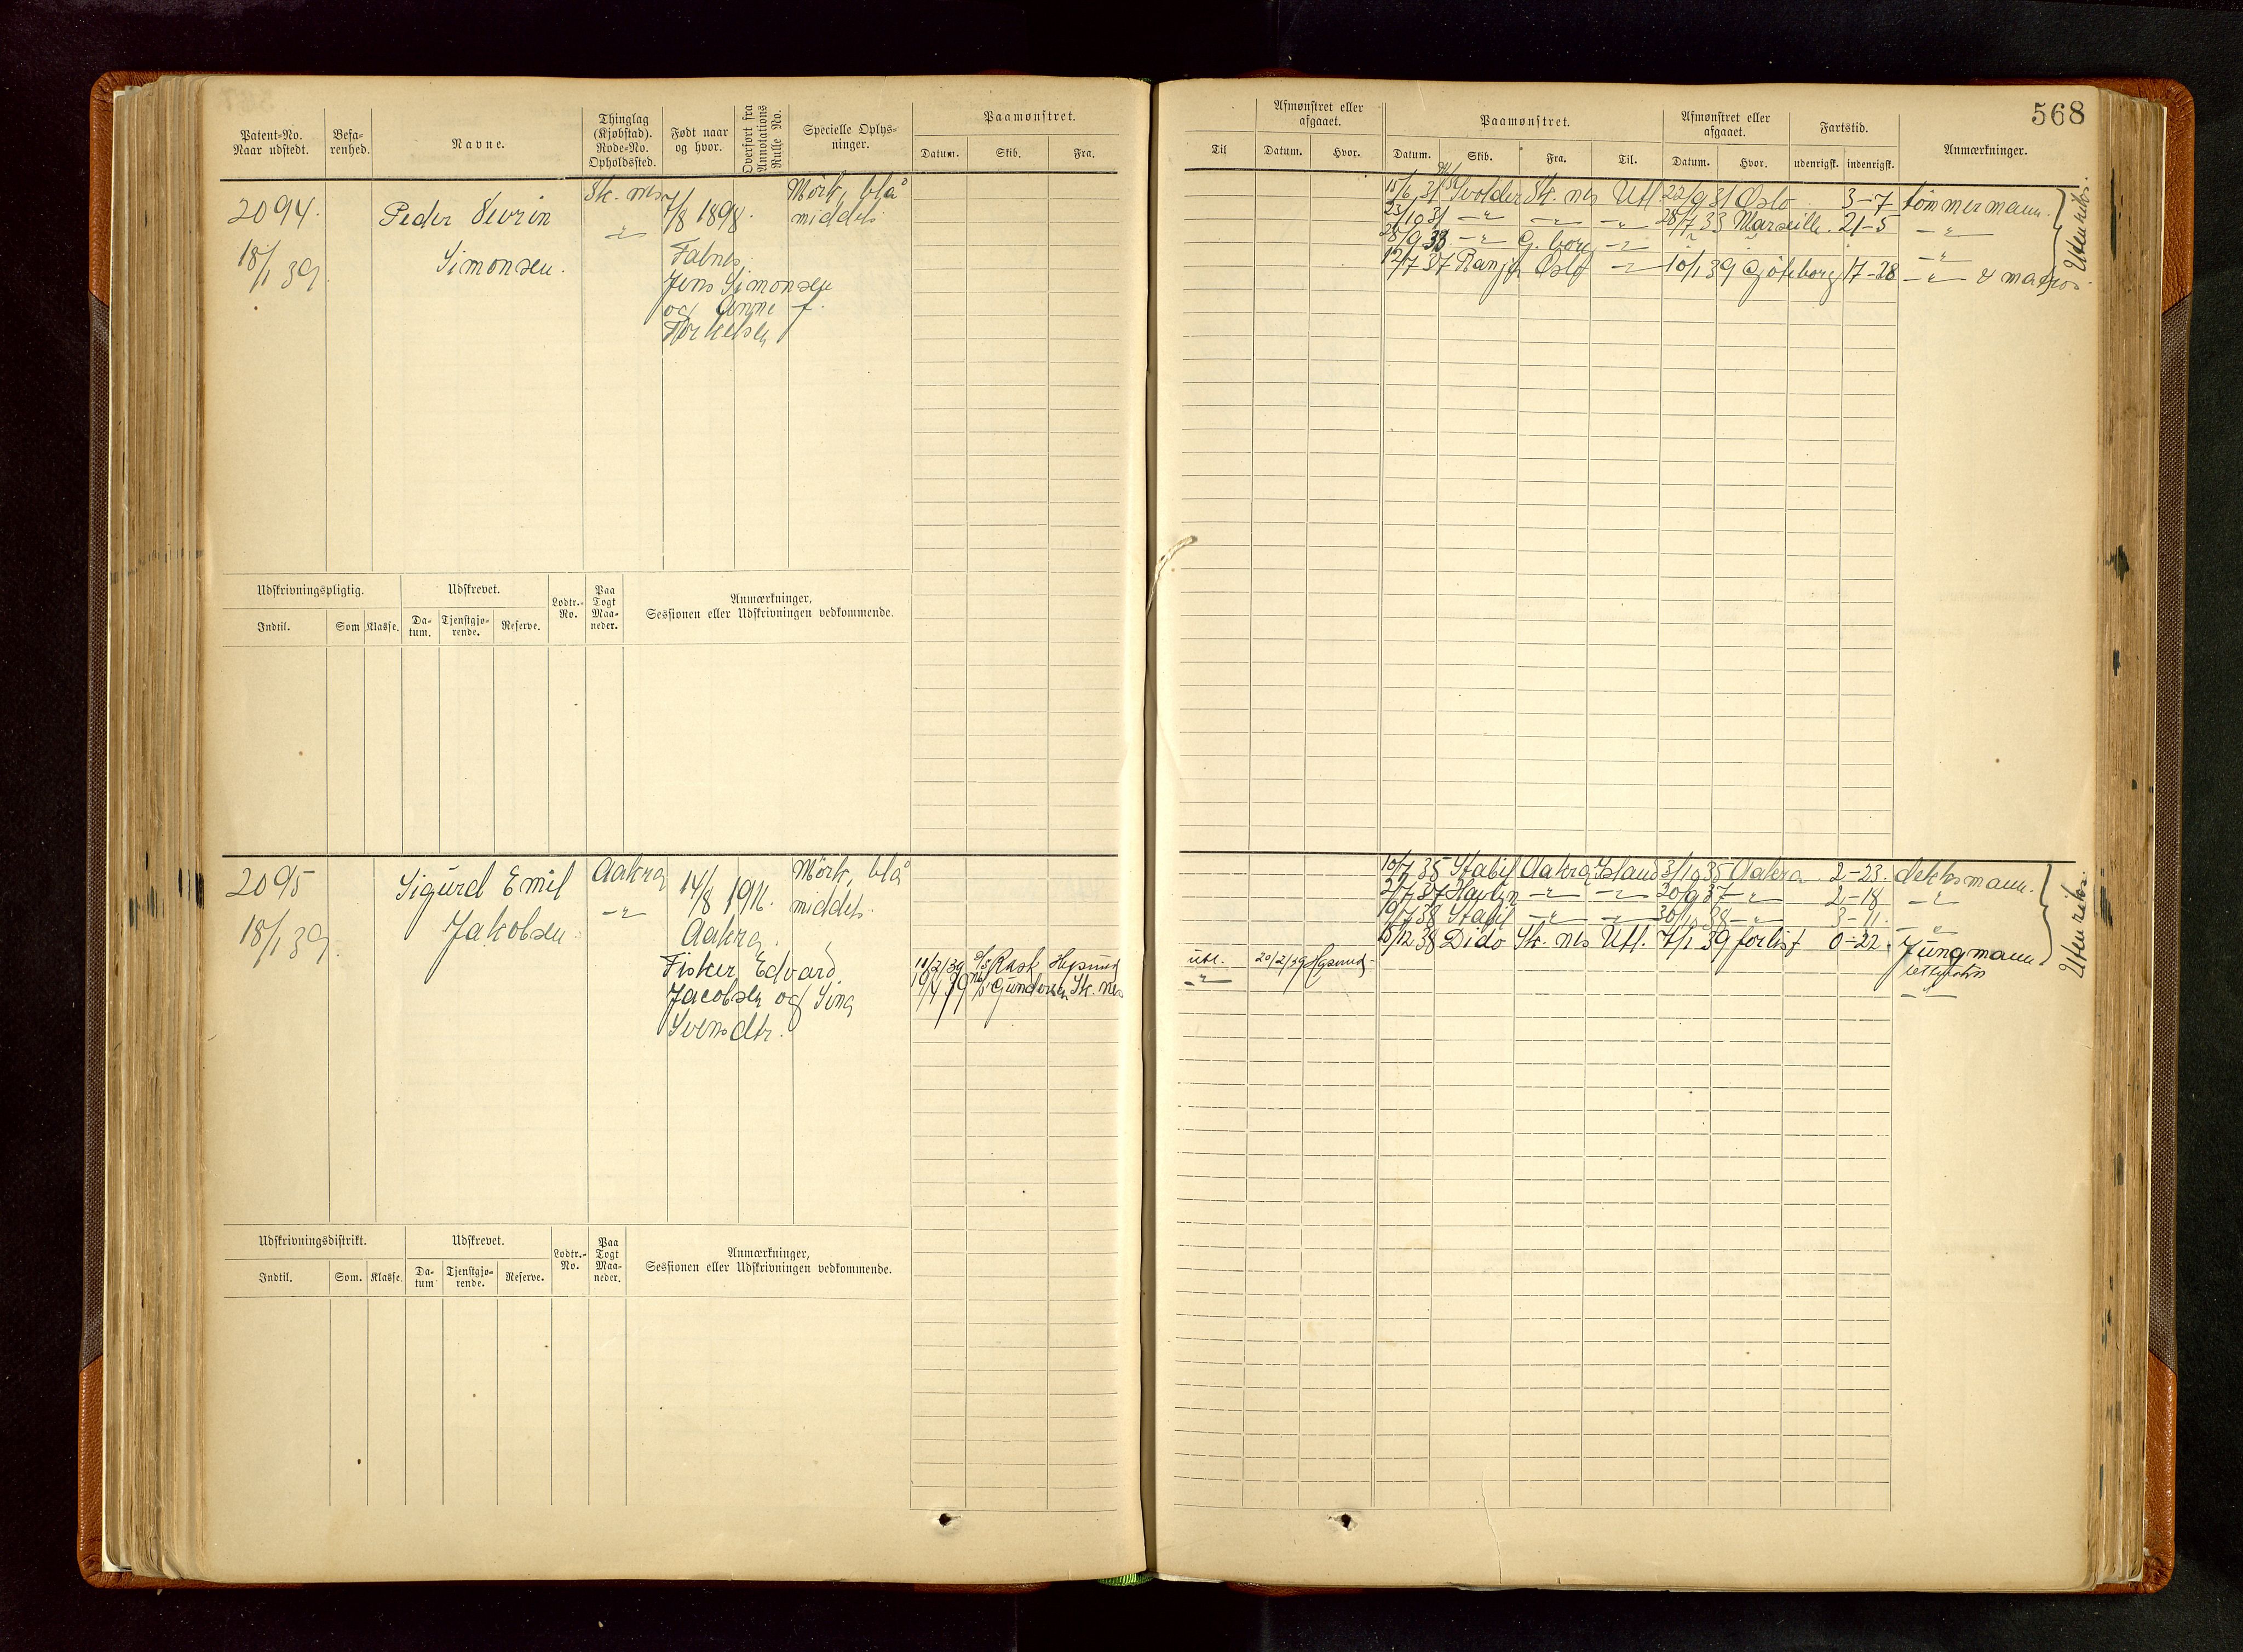 568
Patent-No. Naar udstedt.
Befa-renhed.
Navne.
Thinglag (Kjøbstad). Rode-No. Opholdssted.
Født naar og hvor.
Overført fra Annotations Rulle No.
Specielle Oplys-ninger.
Paamønstret.
Datum. Skib. Fra.
Til
Afmønstret eller afgaaet.
Datum. Hvor.
Paamønstret.
Datum. Skib. Fra. Til.
Afmønstret eller afgaaet.
Datum. Hvor.
Fartstid.
udenrigsk. indenrigsk.
Anmærkninger.
2094.
18/1 39.
Peder Severin
Simonsen.
Sk. nes
-"-
7/8 1898.
Falnes.
Jens Simonsen
og Anne f.
Torkelsen
Mörk, blå
middels
15/6 31 Svolder Sk. nes Utl. 22/9 31 Oslo 3-7 tömmermann.
23/10 31 -"- -"- -"- 28/7 33 Marseille. 21-5 -"-
28/9 33 -"- G. borg -"- " " -"-
12/7 37 Ranja Oslo -"- 10/1 39 Gjöteborg 17-28 -"- & matros.
Utenriks.
Udskrivningspligtig.
Indtil. Som Klasse.
Udskrevet.
Da-tum. Tjenstgjø-rende. Reserve.
Lodtr.-No.
Paa Togt Maa-neder.
Anmærkninger,
Sessionen eller Udskrivningen vedkommende.
2095
18/1 39.
Sigurd Emil
Jakobsen
Aakra
-"-
14/8 1916.
Aakra.
Fisker Edvard
Jacobsen og Sina
Svensdtr.
Mörk, blå
middels.
11/2/39 D/S Rask Hgsund utl. 20/2/39 Hgsund
19/4 39 Gundersen Sk. nes -"-
10/7 35 Stabil Aakra Island 3/10 35 Aakra 2-23. dekksmann.
2/7 37 Havlyn -"- -"- 20/9 37 -"- 2-18 -"-
19/7 38 Stabil -"- -"- 30/10 38 -"- 3-11. -"-
15/12 38 Dido Sk. nes Utl. 7/1 39 forlist 0-22. Jungmann
lettmatros
-"-
Utenriks.
Udskrivningsdistrikt.
Indtil. Som. Klasse.
Udskrevet.
Da-tum Tjenstgjø-rende. Reserve.
Lodtr.-No.
Paa Togt Maa-neder.
Anmærkninger,
Sessionen eller Udskrivningen vedkommende.